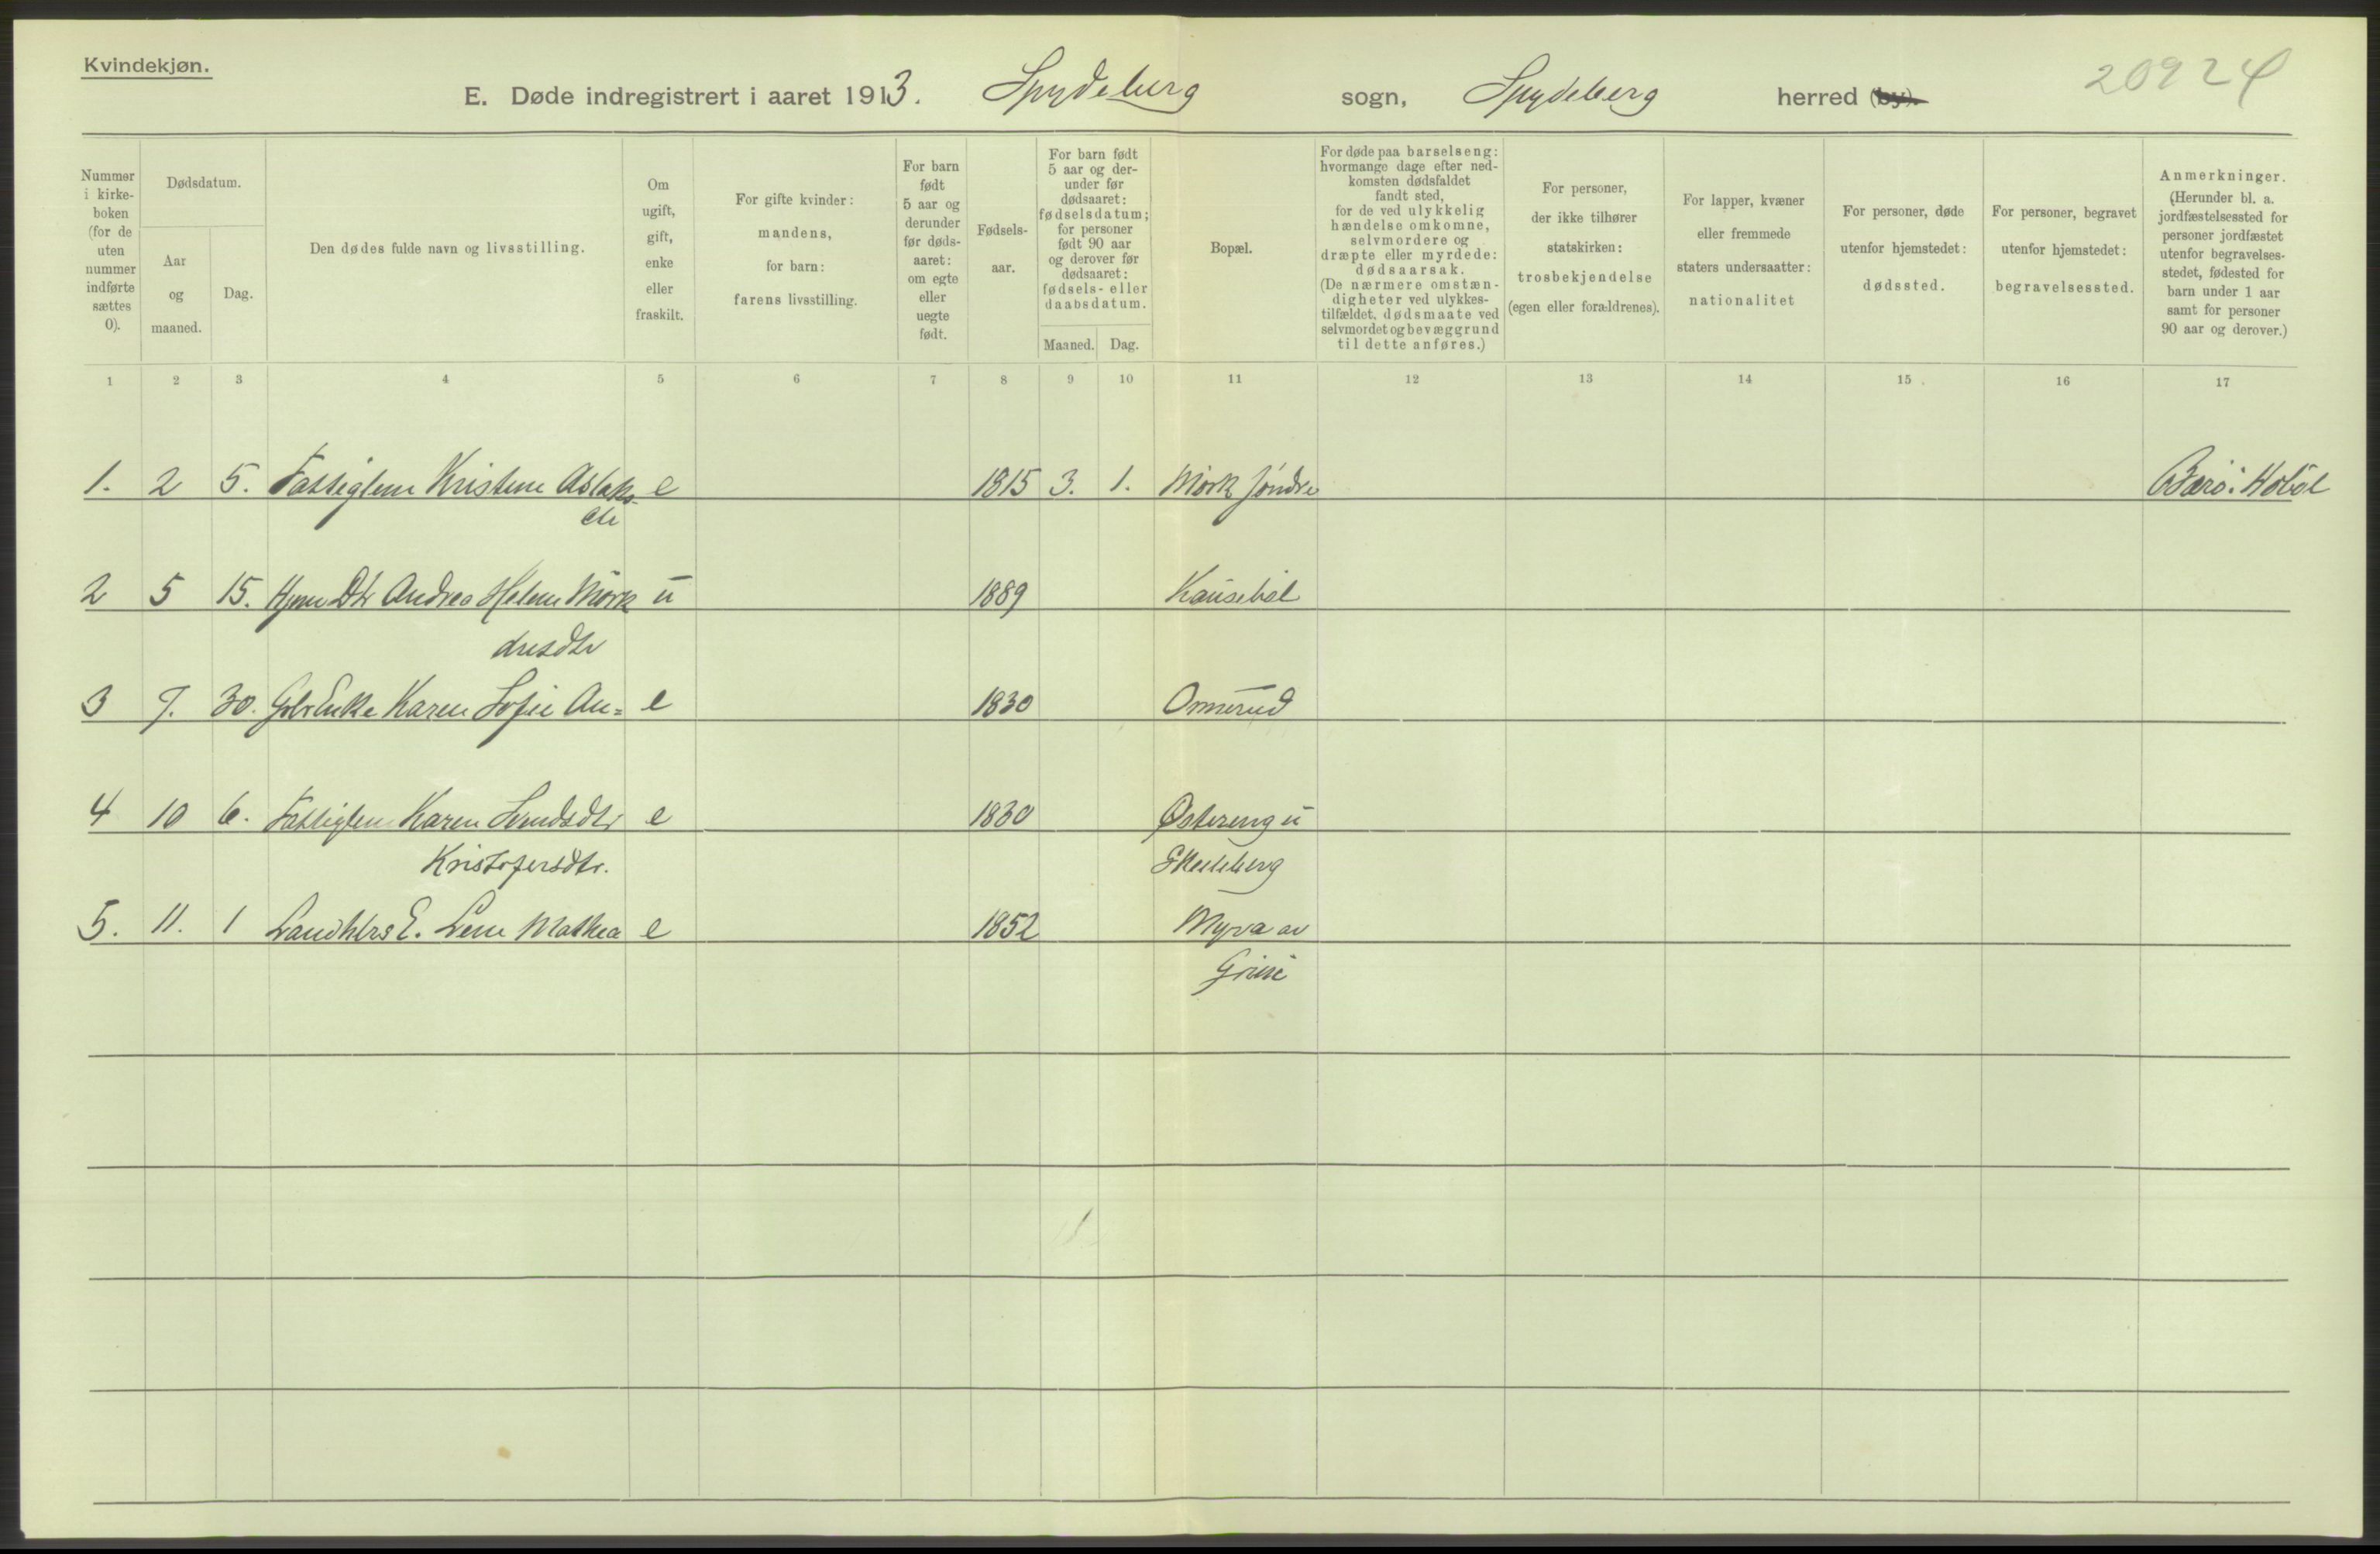 Kvindekjøn.
E. Døde indregistrert i aaret 1913. Spydeberg sogn, Spydeberg herred (by).
20924
Nummer i kirke-boken (for de uten nummer indførte sættes 0).
Dødsdatum.
Aar og maaned.
Dag.
Den dødes fulde navn og livsstilling.
Om ugift, gift, enke eller fraskilt.
For gifte kvinder: mandens, for barn: farens livsstilling.
For barn født 5 aar og derunder før døds-aaret: om egte eller uegte født.
Fødsels-aar.
For barn født 5 aar og der-under før dødsaaret: fødselsdatum; for personer født 90 aar og derover før dødsaaret: fødsels- eller daabsdatum.
Maaned. Dag.
Bopæl.
For døde paa barselseng: hvormange dage efter ned-komsten dødsfaldet fandt sted, for de ved ulykkelig hændelse omkomne, selvmordere og dræpte eller myrdede: dødsaarsak. (De nærmere omstæn-digheter ved ulykkes-tilfældet, dødsmaate ved selvmordet og bevæggrund til dette anføres.)
For personer, der ikke tilhører statskirken: trosbekjendelse (egen eller forældrenes).
For lapper, kvæner eller fremmede staters undersaatter: nationalitet
For personer, døde utenfor hjemstedet: dødssted.
For personer, begravet utenfor hjemstedet: begravelsessted.
Anmerkninger. (Herunder bl. a. jordfæstelsessted for personer jordfæstet utenfor begravelses-stedet, fødested for barn under 1 aar samt for personer 90 aar og derover.)
1 2 3 4 5 6 7 8 9 10 11 12 13 14 15 16 17
1. 2 5. Fattiglem Kristine Aslaks- e 1815 3. 1. Mörk söndre Hobøl
dtr
2 5 15. Dtr Andrea Helene Mörk u 1889
dresdtr
3 7. 30. Enke Karen Sofie An= e 1830
4 10 6. Fattiglem Karen e 1830 Østereng u
Kristofersdtr.
5. 11. 1 E. Lene Mathea e 1852 Myra av